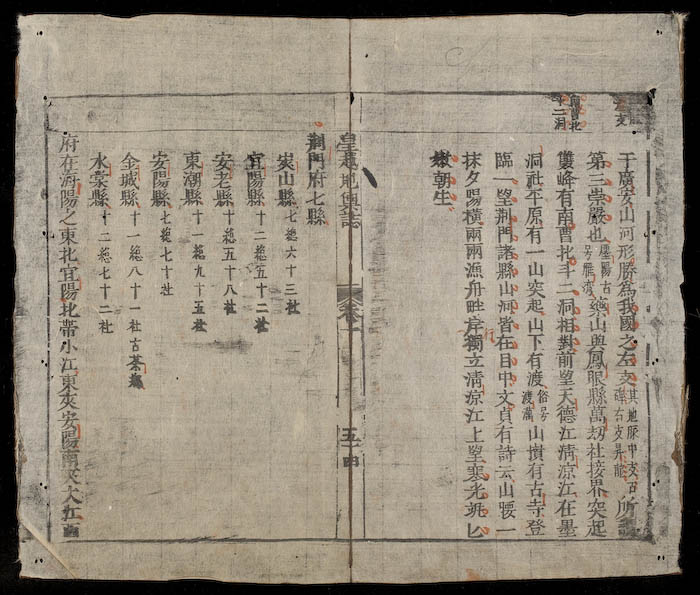 于廣安山河形勝為我國之左支其地脉中支右所謂
第三崇嚴也藥山與鳳眼縣萬劫社接界突起
雙峰有南曹北斗二洞相對前望天德江清凉江在墨
洞社平原有一山突起山下有渡俗号山墳有古寺登
臨一望荆門諸縣山河皆在目中文貞有詩云山腰一
抹夕陽橫兩兩漁舟畔岸行獨立清凉江上望寒光
嫩朝生
南曹北
斗二洞
皇越地輿誌
卷一
五十四
荆門府七縣
炭山縣七總六十三社
宜陽縣十二總五十二社
安老縣十總五十八社
東潮縣十一總九十五社
安陽縣七總七十社
金城縣十一總八十一社古茶
水棠縣十二總七十二社
府在海陽之東北宜陽北帶小江東夾安陽南夾大江西